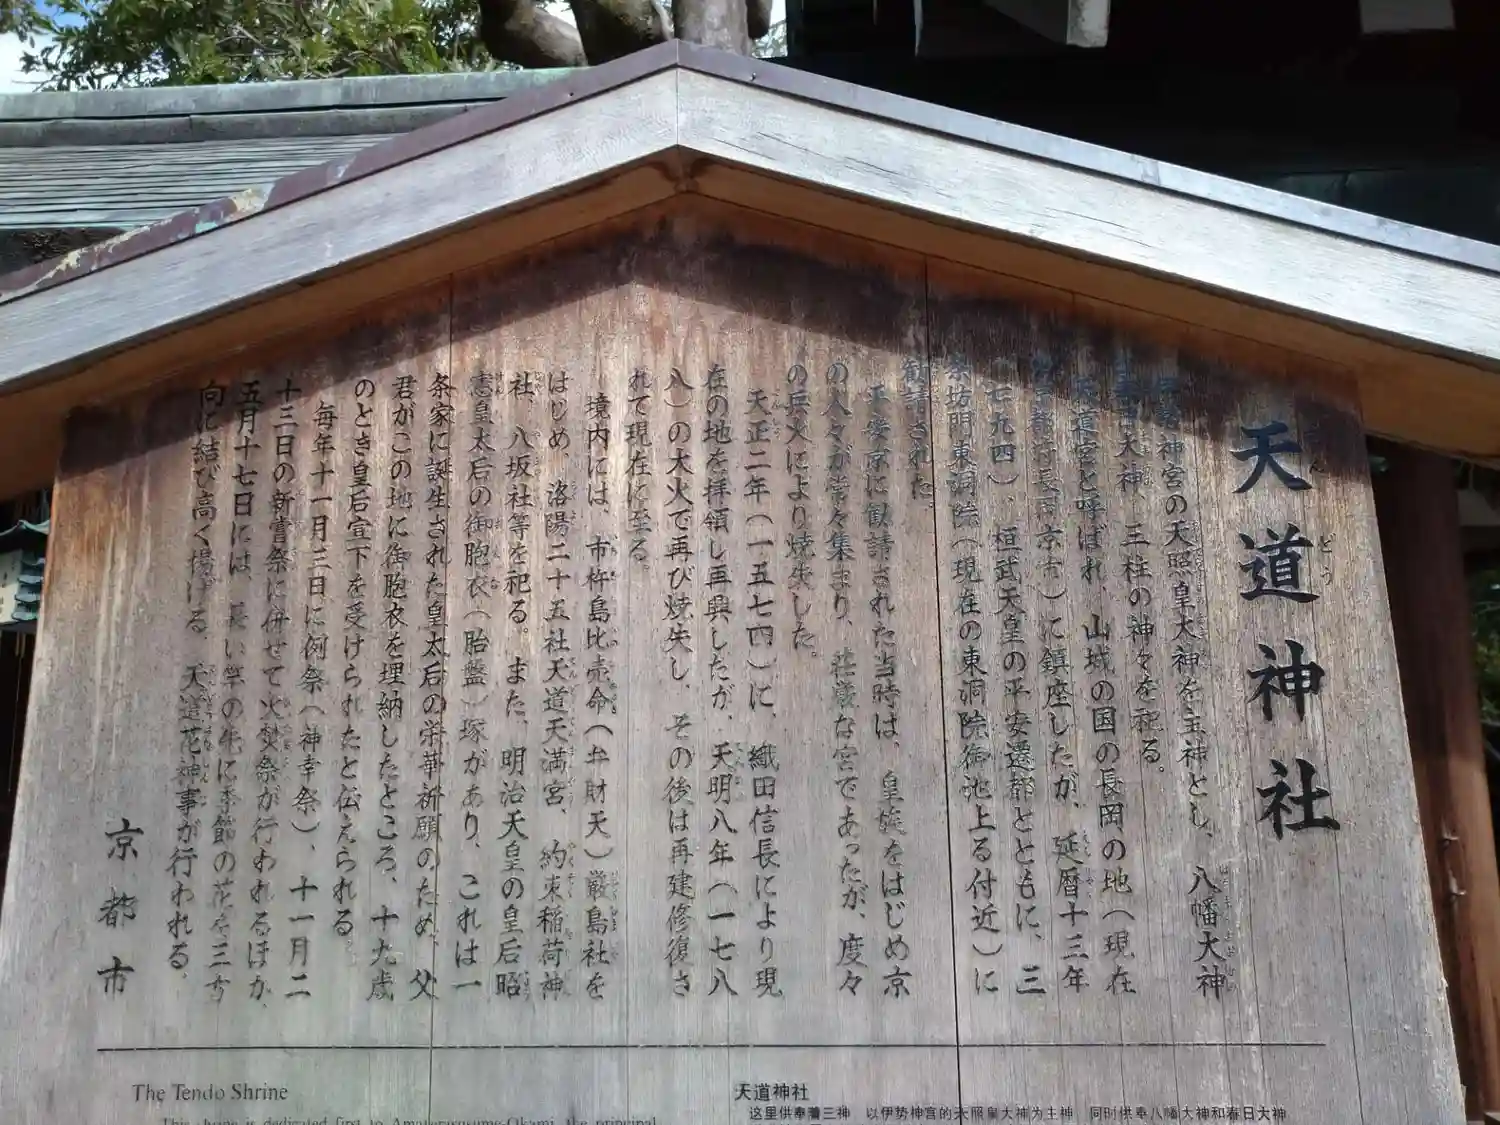 天道神社
伊勢神宮の天照皇大神を主神とし、八幡大神
春日大神、三柱の神々を祀る。
天道宮と呼ばれ、山城の国の長岡の地（現在
の京都府長岡京市）に鎮座したが、延暦十三年
（七九四）、桓武天皇の平安遷都とともに、三
条坊門東洞院（現在の東洞院御池上る付近）に
勧請された。
平安京に勧請された当時は、皇族をはじめ京
の人々が常々集まり、荘厳な宮であったが、度々
の兵火により焼失した。
天正二年（一五七四）に、織田信長により現
在の地を拝領し再興したが、天明八年（一七八
八）の大火で再び焼失し、その後は再建修復さ
れて現在に至る。
境内には、市杵島比売命（弁財天）厳島社を
はじめ、洛陽二十五社天道天満宮、約束稲荷神
社、八坂社等を祀る。また、明治天皇の皇后昭
憲皇太后の御胞衣（胎盤）塚があり、これは一
条家に誕生された皇太后の栄華祈願のため、父
君がこの地に御胞衣を埋納したところ、十九歳
のとき皇后宣下を受けられたと伝えられる。
毎年十一月三日に例祭（神幸祭）、十一月二
十三日の新嘗祭に併せて火焚祭が行われるほか、
五月十七日には、長い竿の先に季節の花を三方
向に結び高く揚げる 天道花神事が行われる。
京都市
The Tendo Shrine
This shrine is dedicated first to Amaterasusume-Okami, the principal
天道神社
这里供奉着三神 以伊势神宫的天照皇大神为主神 同时供奉八幡大神和春日大神